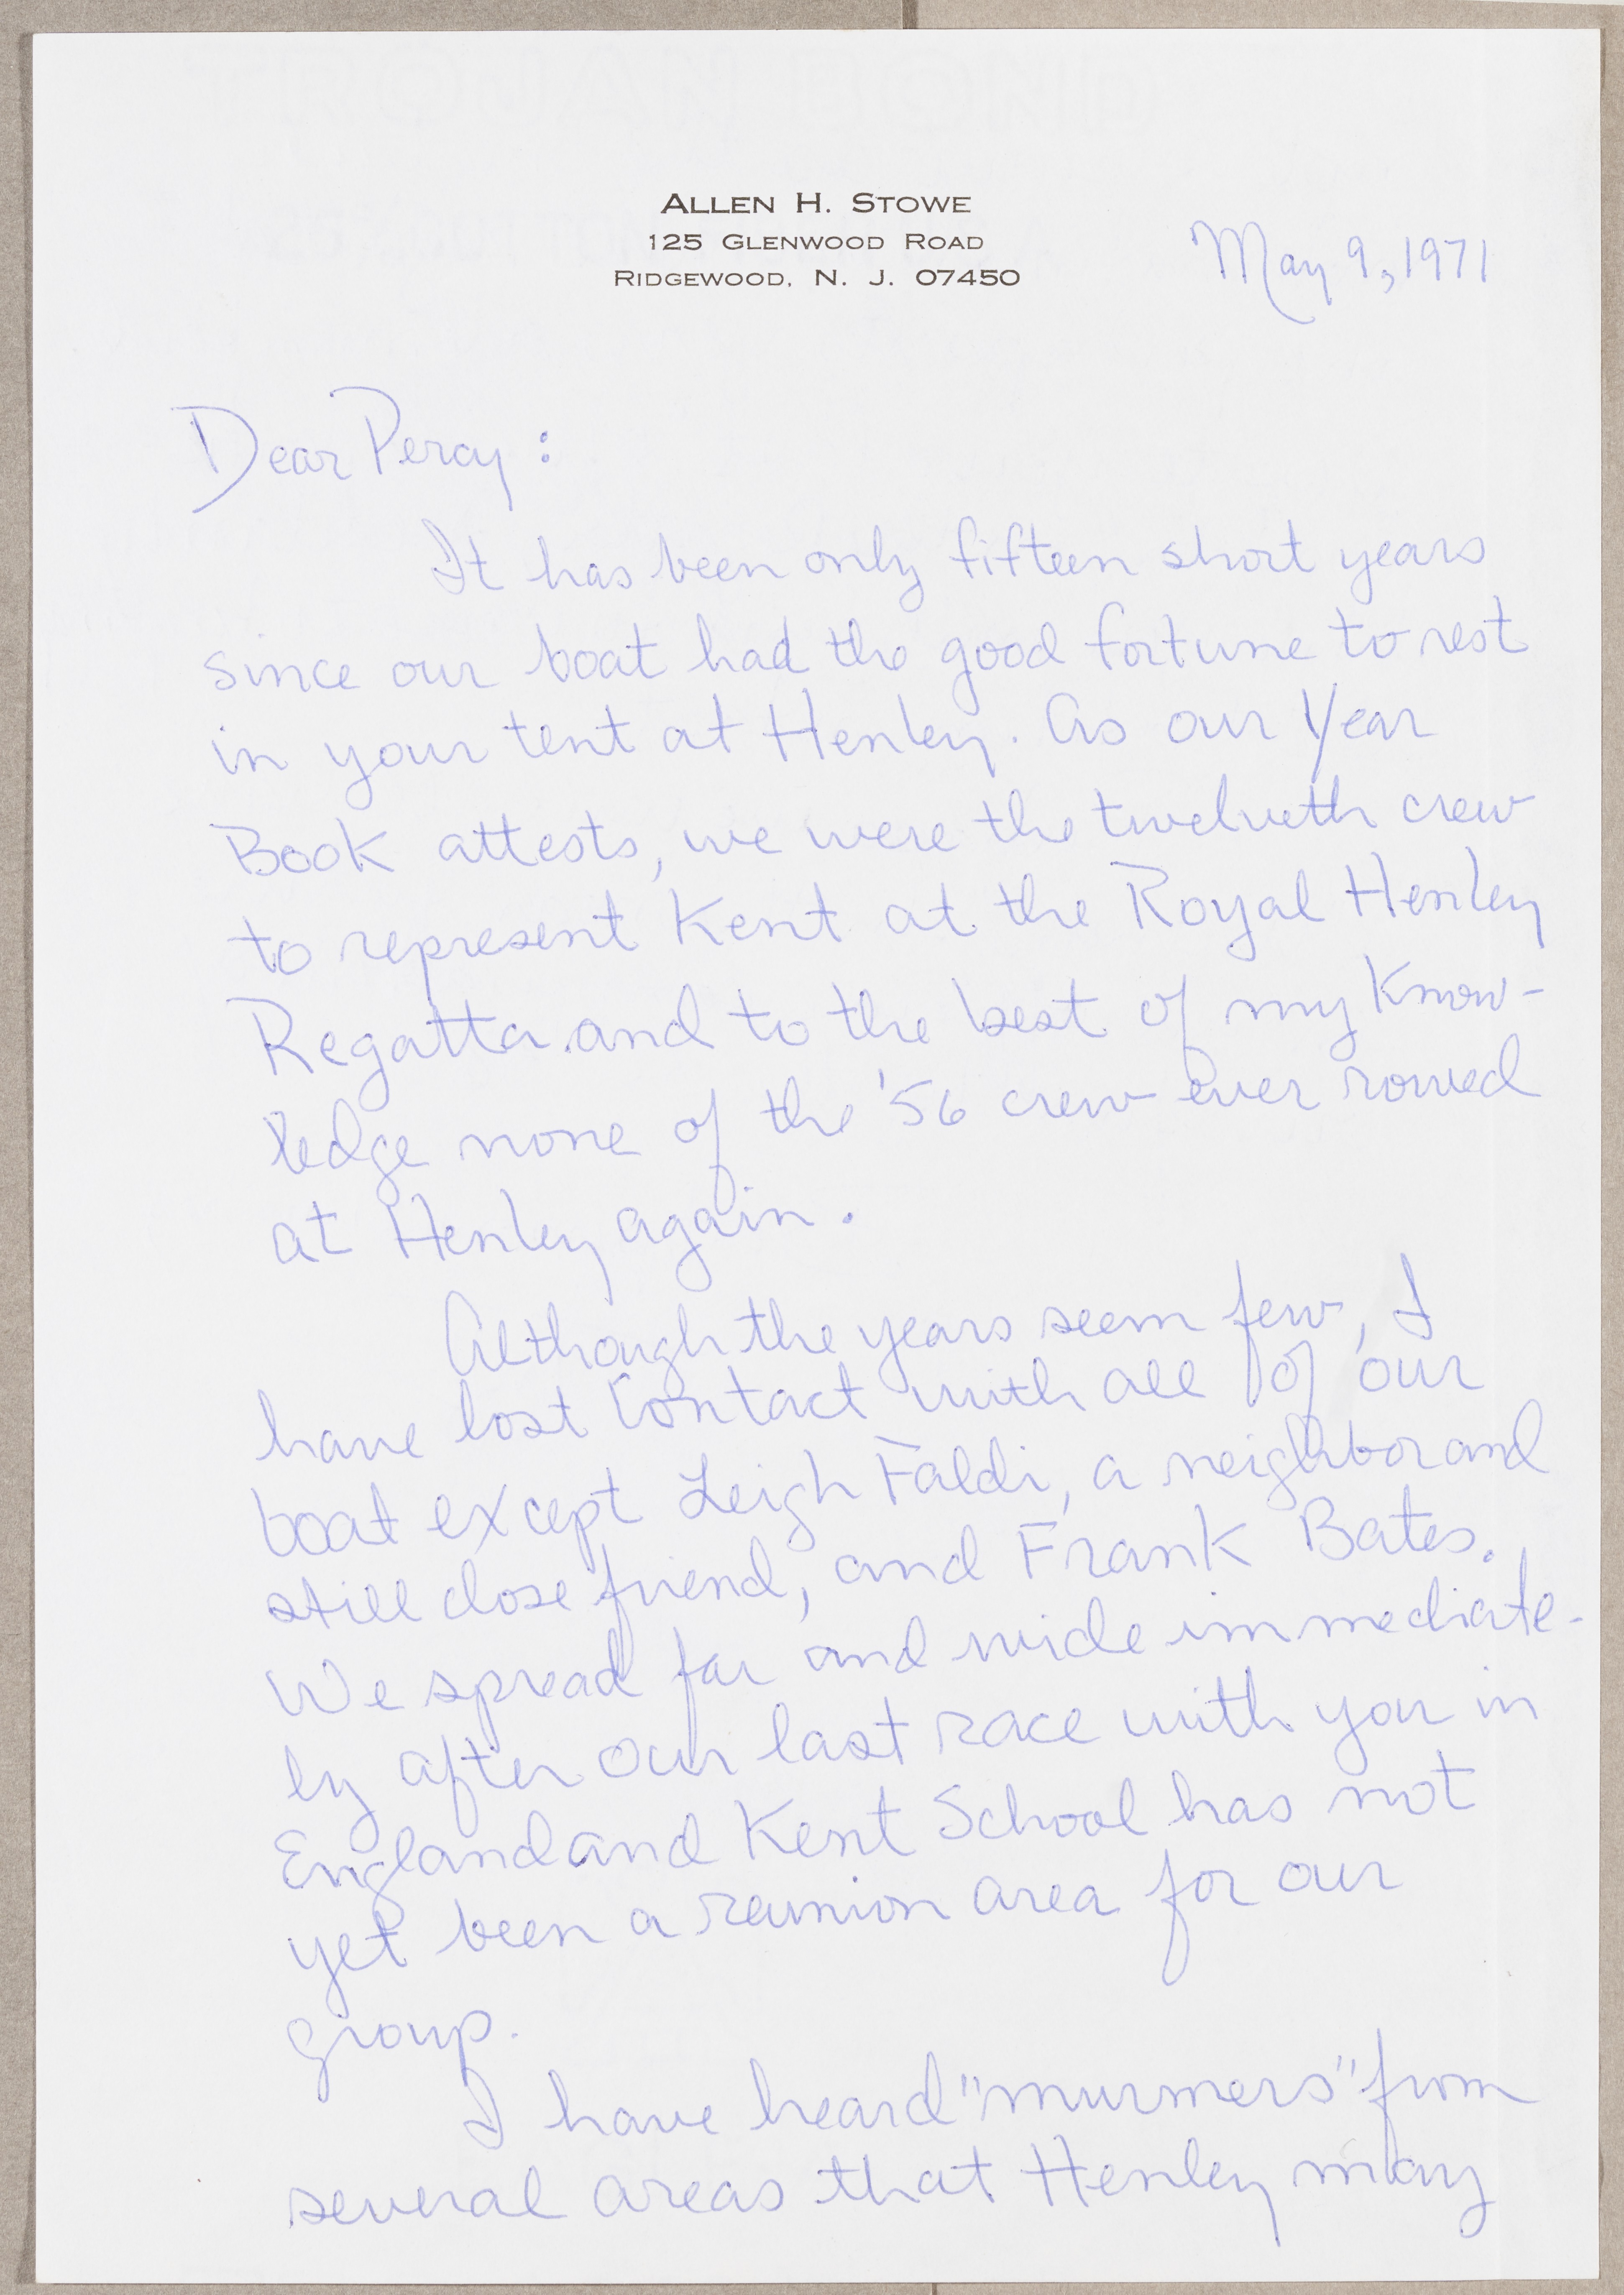 ALLEN H. STOWE
125 GLENWOOD ROAD
RIDGEWOOD, N. J. 07450
May 9, 1971
Dear Percy:
It has been only fifteen short years
since our boat had the good fortune to rest
in your tent at Henley. As our Year
Book attests, we were the twelveth crew
to represent Kent at the Royal Henley
Regatta and to the best of my know-
ledge none of the '56 crew ever rowed
at Henley again.
Although the years seem few, I
have lost contact with all of our
boat except Leigh Faldi, a neighbor and
still close friend, and Frank Bates.
We spread far and wide immediate-
ly after our last race with you in
England and Kent School has not
yet been a reunion area for our
group.
I have heard "murmers" from
several areas that Henley may